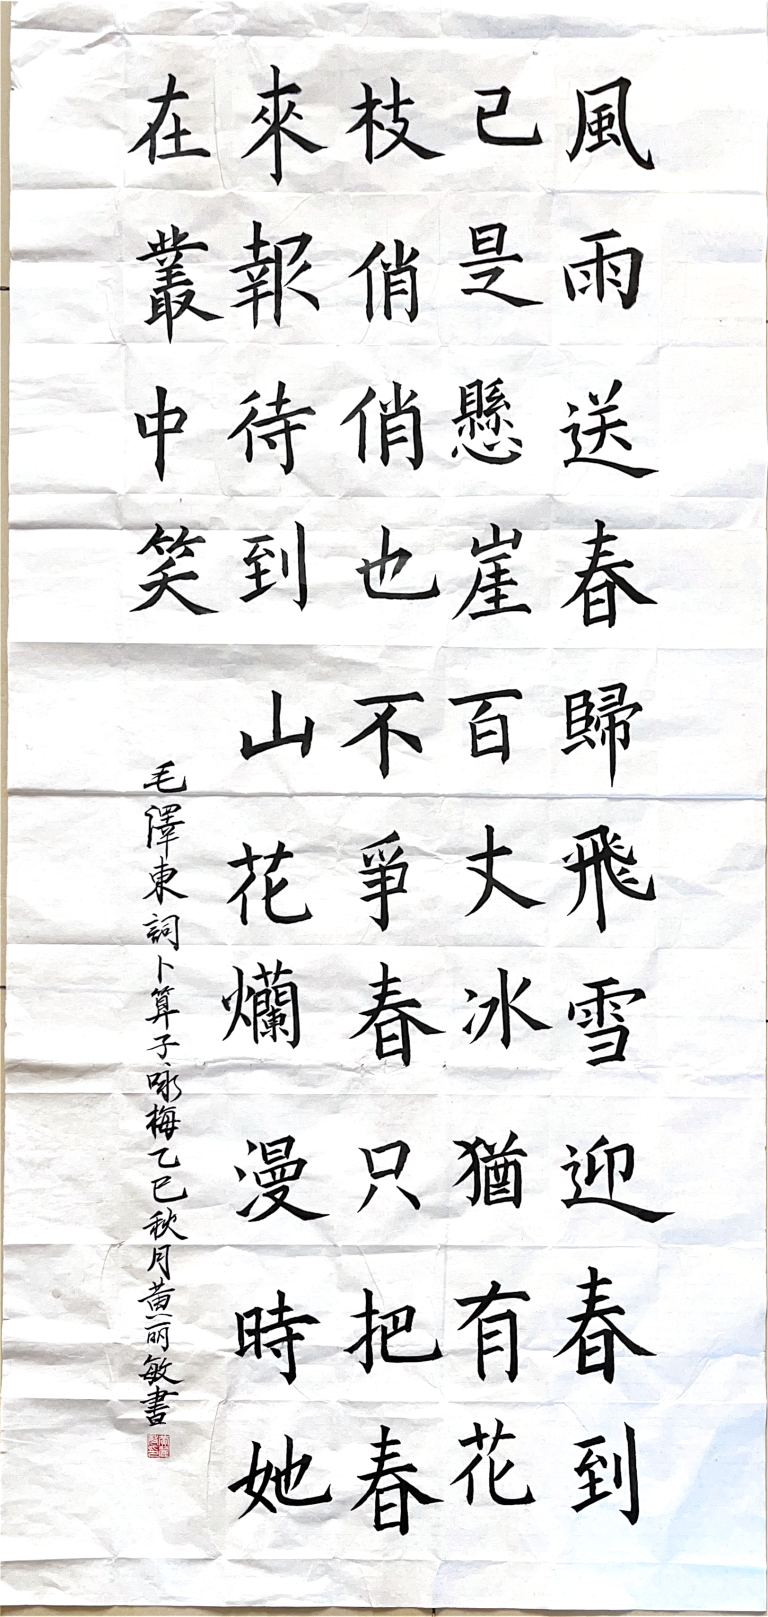 風雨送春歸飛雪迎春到
已是懸崖百丈冰猶有花
枝俏俏也不爭春只把春
來報待到山花爛漫時她
在叢中笑
毛澤東詞卜算子咏梅乙巳秋月黄丽敏書